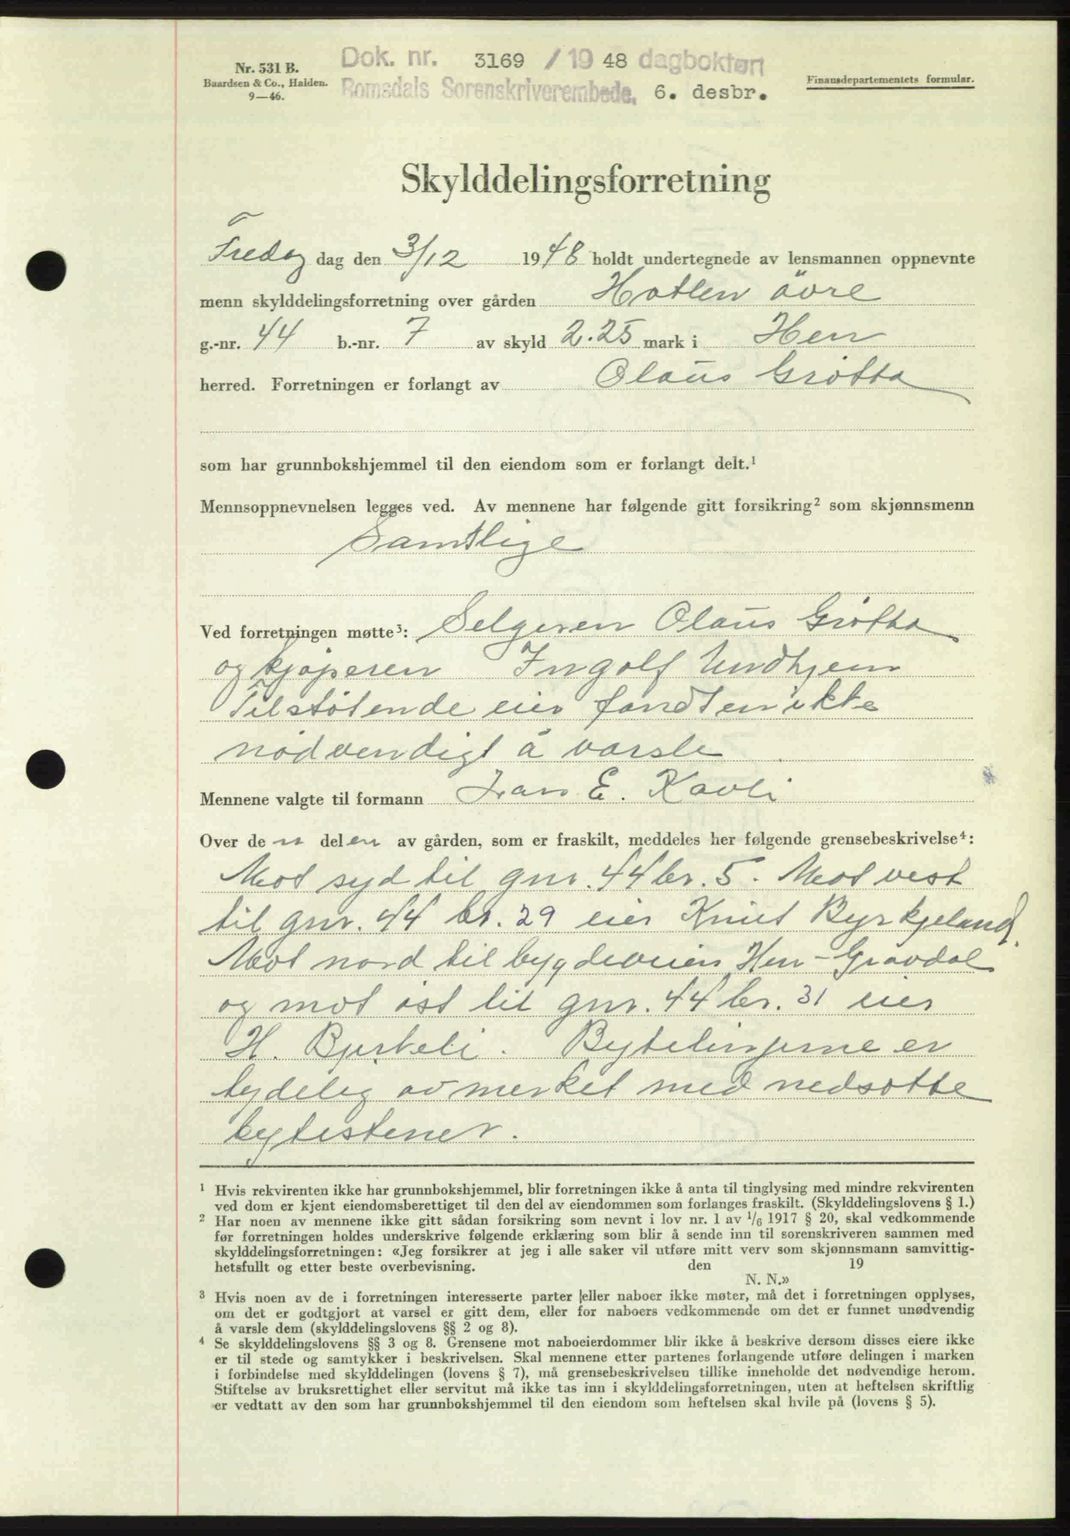 Nr. 531 B.
Baardsen & Co., Halden.
9—46.
Dok. nr. 3169 / 19 48 dagbokført
Romsdals Sorenskriverembede, 6. desbr.
Finansdepartementets formular.
Skylddelingsforretning
Fredag dag den 3/12 1948 holdt undertegnede av lensmannen oppnevnte
menn skylddelingsforretning over gården Hatlen övre
g.-nr. 44 b.-nr. 7 av skyld 2.25 mark i Hen
herred. Forretningen er forlangt av Olaus Grötta
som har grunnbokshjemmel til den eiendom som er forlangt delt.¹
Mennsoppnevnelsen legges ved. Av mennene har følgende gitt forsikring² som skjønnsmenn
Samtlige
Ved forretningen møtte³: Selgeren Olaus Grötta
og kjöperen Ingolf Undhjem
Tilstötende eier fandten ikke
nödvendigt å varsle
Mennene valgte til formann E. Kavli
Over den delen av gården, som er fraskilt, meddeles her følgende grensebeskrivelse⁴:
Mot syd til gnr. 44 br. 5. Mot vest
til gnr. 44 br. 29 eier Knut Byrkjeland.
Mot nord til bygdeveien Hen - Gravdal
og mot öst til gnr. 44 br. 31 eier
H. Byrkeli. Bytelinjerne er
tydelig avmerket med nedsatte
bytestener.
¹ Hvis rekvirenten ikke har grunnbokshjemmel, blir forretningen ikke å anta til tinglysing med mindre rekvirenten
ved dom er kjent eiendomsberettiget til den del av eiendommen som forlanges fraskilt. (Skylddelingslovens § 1.)
² Har noen av mennene ikke gitt sådan forsikring som nevnt i lov nr. 1 av 1/6 1917 § 20, skal vedkommende
før forretningen holdes underskrive følgende erklæring som blir å sende inn til sorenskriveren sammen med
skylddelingsforretningen: «Jeg forsikrer at jeg i alle saker vil utføre mitt verv som skjønnsmann samvittig-
hetsfullt og etter beste overbevisning. den 19
N. N.»
³ Hvis noen av de i forretningen interesserte parter eller naboer ikke møter, må det i forretningen opplyses,
om det er godtgjort at varsel er gitt dem, eller for naboers vedkommende om det er funnet unødvendig
å varsle dem (skylddelingslovens §§ 2 og 8).
⁴ Se skylddelingslovens §§ 3 og 8. Grensene mot naboeierdommer blir ikke å beskrive dersom disses eiere ikke
er til stede og samtykker i beskrivelsen. Skal mennene etter partenes forlangende utføre delingen i marken
i forbindelse med skylddelingen (lovens § 7), må grensebeskrivelsen tillike inneholde det nødvendige herom.
Stiftelse av bruksrettighet eller servitut må ikke tas inn i skylddelingsforretningen, uten at heftelsen skriftlig
er vedtatt av den som har grunnbokshjemmel til den eiendom som heftelsen skal hvile på (lovens § 5).